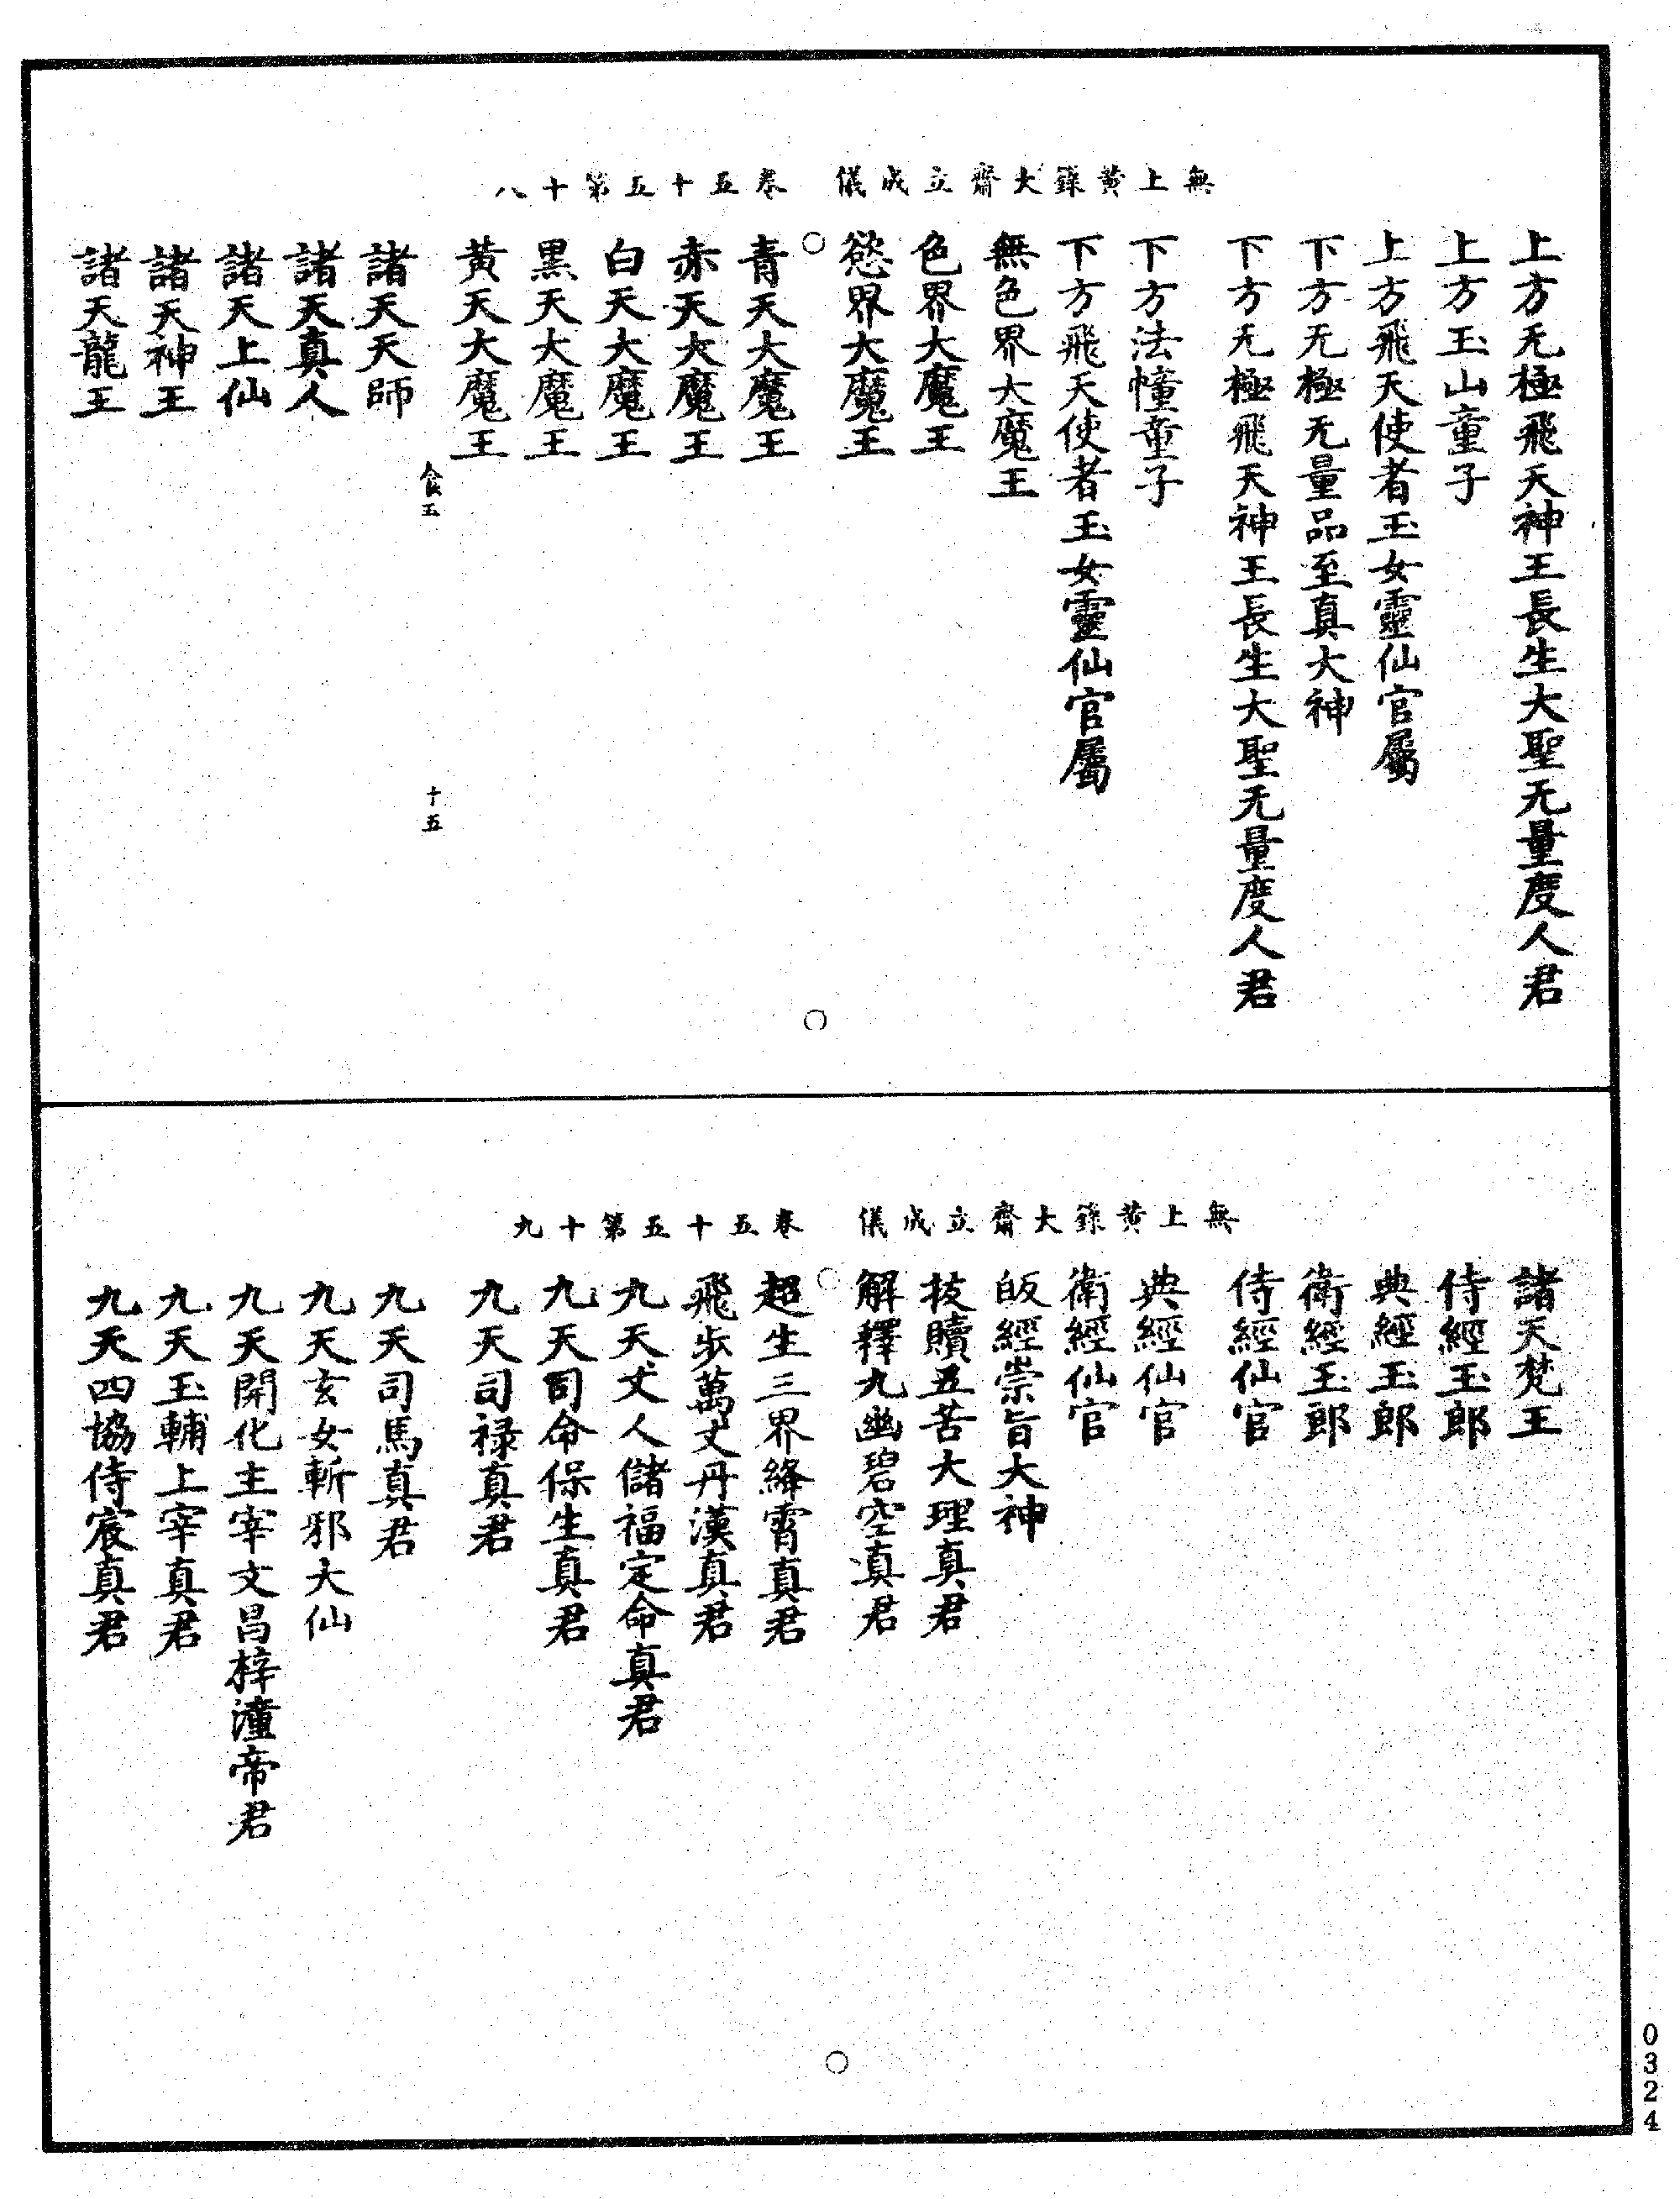 無上黃籙大齋立成儀　卷五十五第十八
上方无極飛天神王長生大聖无量度人君
上方玉山童子
上方飛天使者玉女靈仙官屬
下方无極无量品至真大神
下方无極飛天神王長生大聖无量度人君
下方法幢童子
下方飛天使者玉女靈仙官屬
無色界大魔王
色界大魔王
慾界大魔王
青天大魔王
赤天大魔王
白天大魔王
黑天大魔王
黃天大魔王
食五　十五
諸天天師
諸天真人
諸天上仙
諸天神王
諸天龍王
無上黃籙大齋立成儀　卷五十五第十九
諸天梵王
侍經玉郎
典經玉郎
衛經玉郎
侍經仙官
典經仙官
衛經仙官
皈經崇旨大神
拔贖五苦大理真君
解釋九幽碧空真君
超生三界絳霄真君
飛步萬丈丹漢真君
九天丈人儲福定命真君
九天司命保生真君
九天司祿真君
九天司馬真君
九天玄女斬邪大仙
九天開化主宰文昌梓潼帝君
九天玉輔上宰真君
九天四協侍宸真君
0324